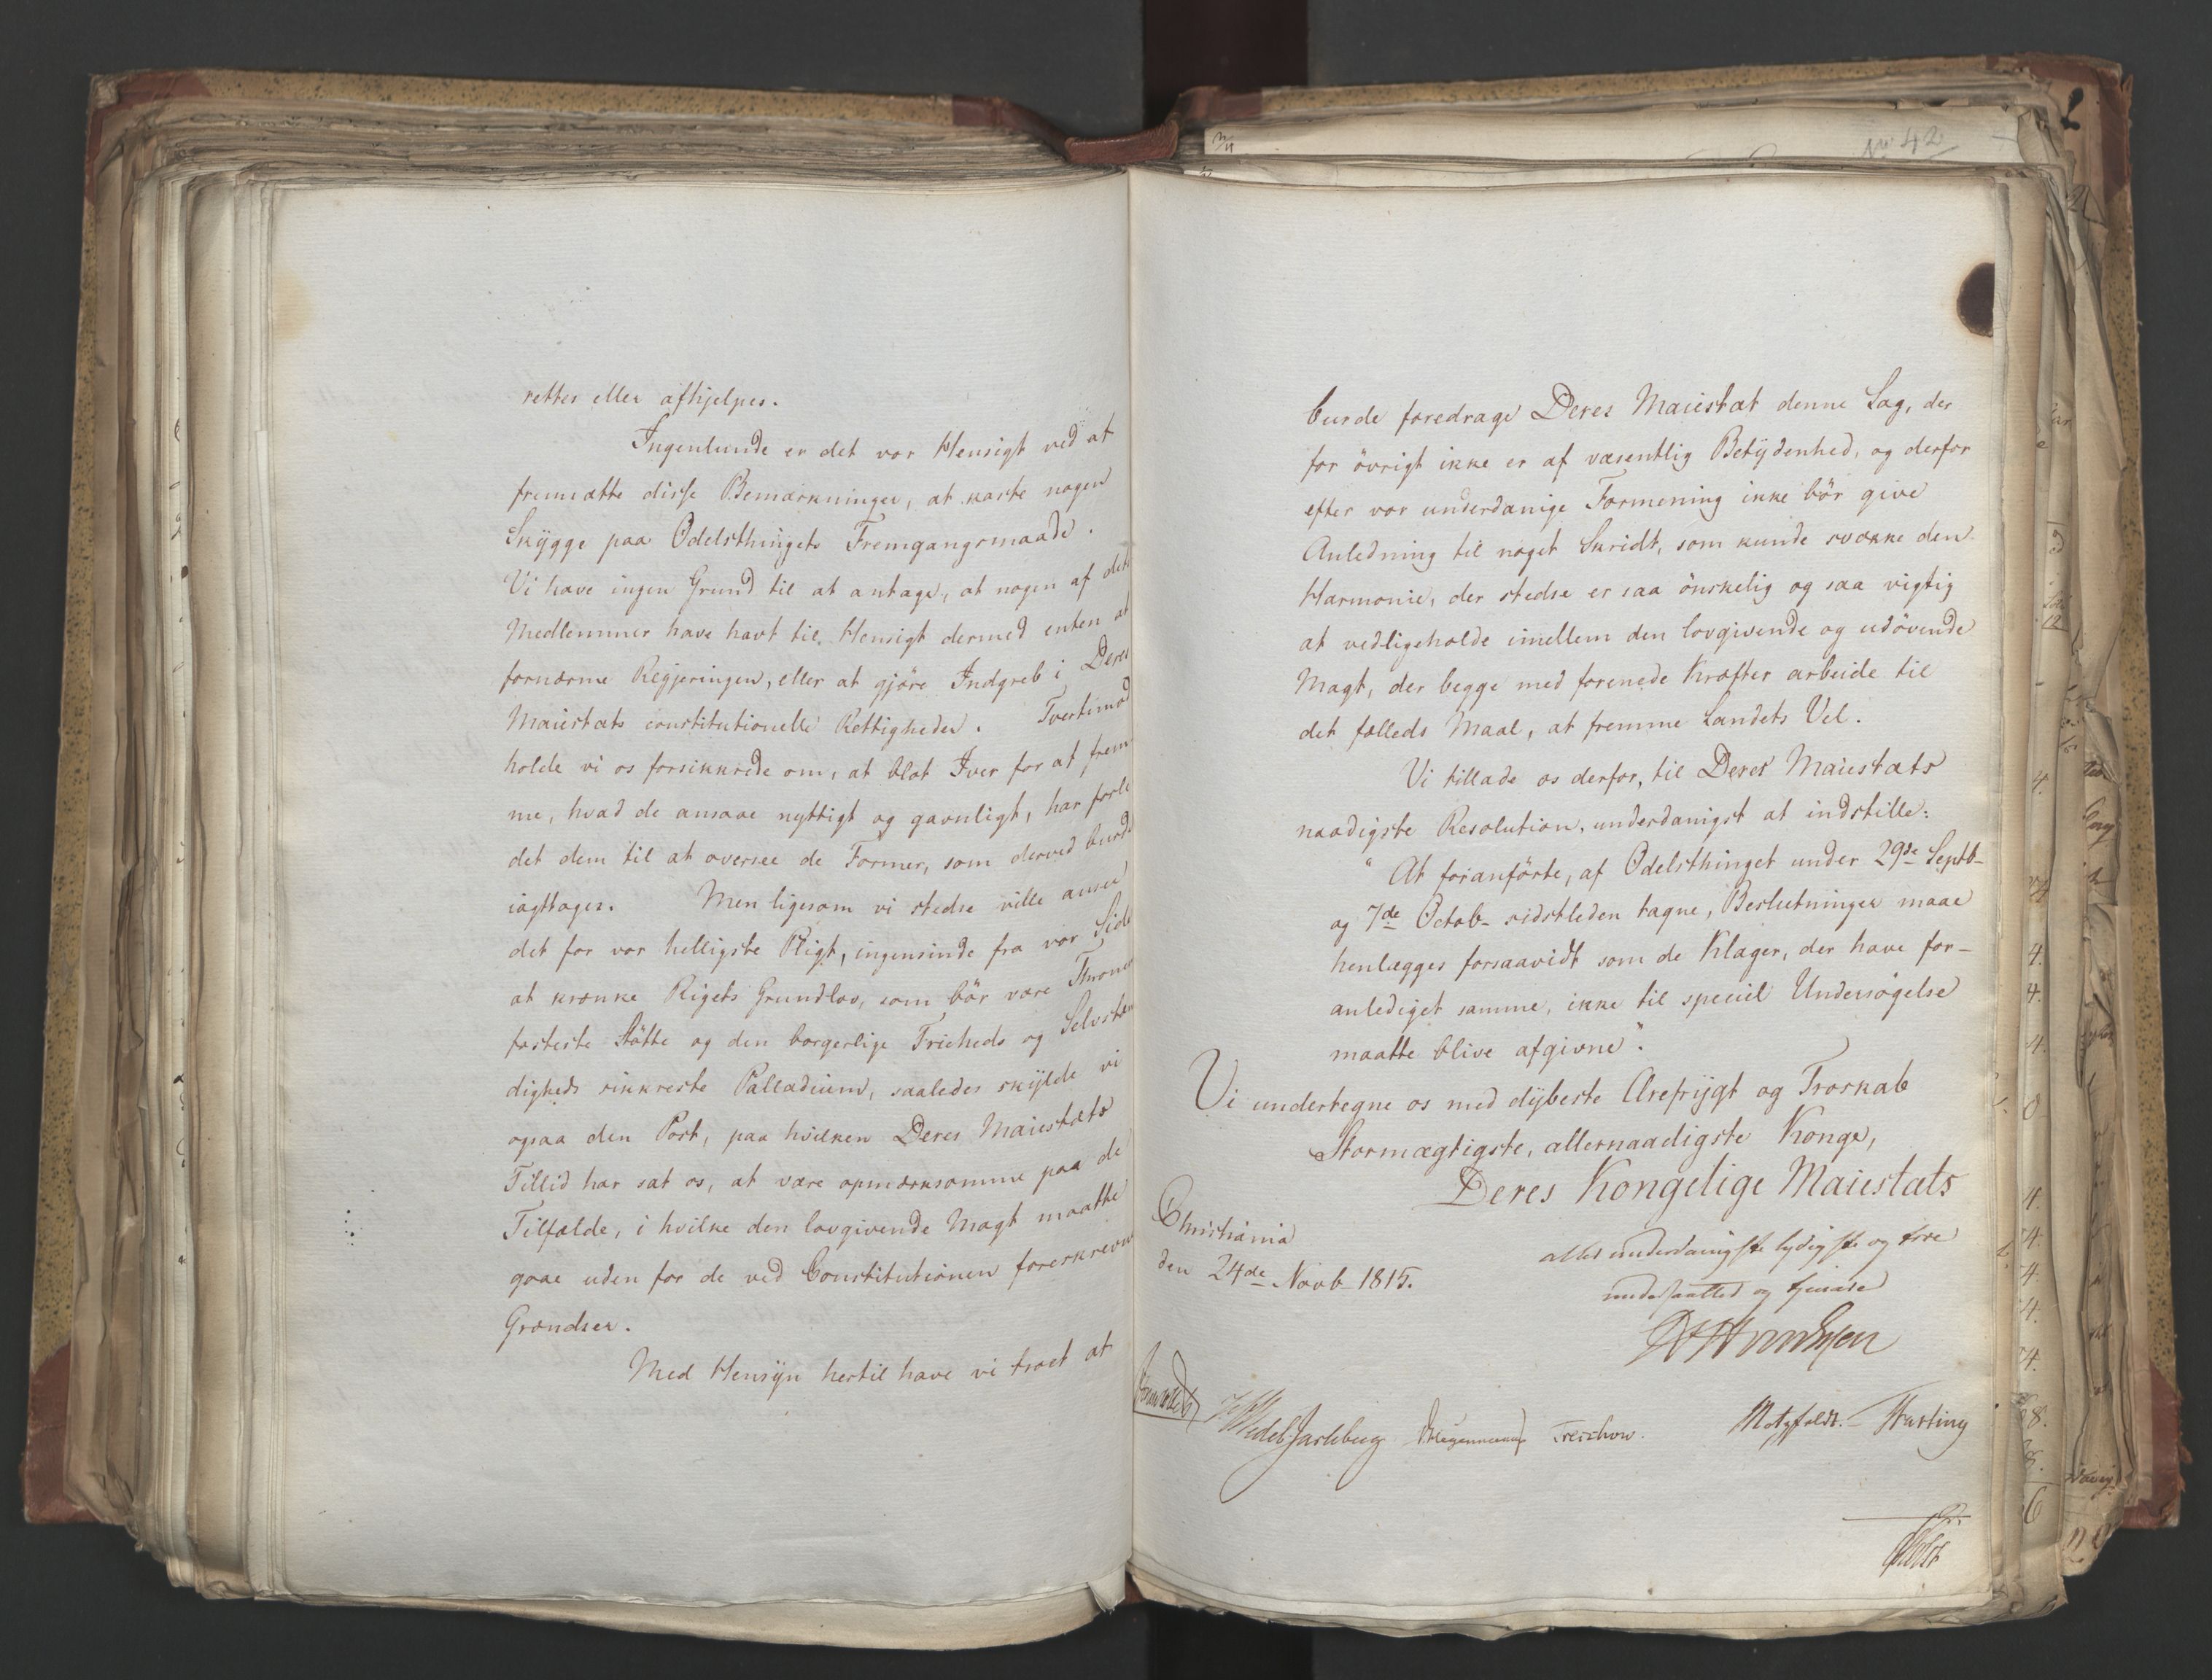 rettes eller afhjelpes.
Ingenlunde er det vor Hensigt ved at
fremsætte disse Bemærkninger, at kaste nogen
Skÿgge paa Odelsthingets Fremgangsmaade.
Vi have ingen Grund til at antage, at nogen af dets
Medlemmer have havt til Hensigt dermed enten at
fornærme Regjeringen, eller at gjöre Indgreb i Deres
Maiestæts constitutionelle Rettigheder. Tvertimod
holde vi os forsikkrede om, at blot Iver for at frem
me, hvad de ansaae nyttigt og gavnligt, har forle
det dem til at oversee de Former, som derved burde
iagttages. Men ligesom vi stedse ville ansee
det for vor helligste Pligt, ingensinde fra vor Side
at krænke Rigets Grundlov, som bör være Thronens
fasteste Stötte og den borgerlige Friheds og Selvstæn
digheds sikkreste Palladium, saaledes skÿlde vi
ogsaa den Post, paa hvilken Deres Maiestæts
Tillid har sat os, at være opmærksomme paa de
Tilfælde, i hvilke den lovgivende Magt maatte
gaae uden for de ved Constitutionen foreskrevne
Grændser.
Med Hensÿn hertil have vi troet at
No 42
burde foredrage Deres Maiestæt denne Sag, der
for övrigt ikke er af væsentlig Betÿdenhed, og derfor
efter vor underdanige Formening ikke bör give
Anledning til noget Skridt, som kunde svække den
Harmonie, der stedse er saa önskelig og saa vigtig
at vedligeholde imellem den lovgivende og udövende
Magt, der begge med forenede Kræfter arbeide til
det fælleds Maal, at fremme Landets Vel.
Vi tillade os derfor, til Deres Maiestæts
naadigste Resolution, underdanigst at indstille:
"At foranförte, af Odelsthinget under 29de Septb-
og 7de Octob- sidstleden tagne, Beslutninger maae
henlægges forsaavidt som de Klager, der have for-
anlediget samme, ikke til speciel Undersögelse
maatte blive afgivne".
Vi undertegne os med dÿbeste Ærefrÿgt og Troskab
Stormægtigste, allernaadigste Konge,
Deres Kongelige Maiestæts
Christiania
den 24de Novb- 1815.
allerunderdanigste lydigste og troe
undersaatter og tjenere
Wedel Jarlsberg
Treschow.
Motzfeldt.
Hasting